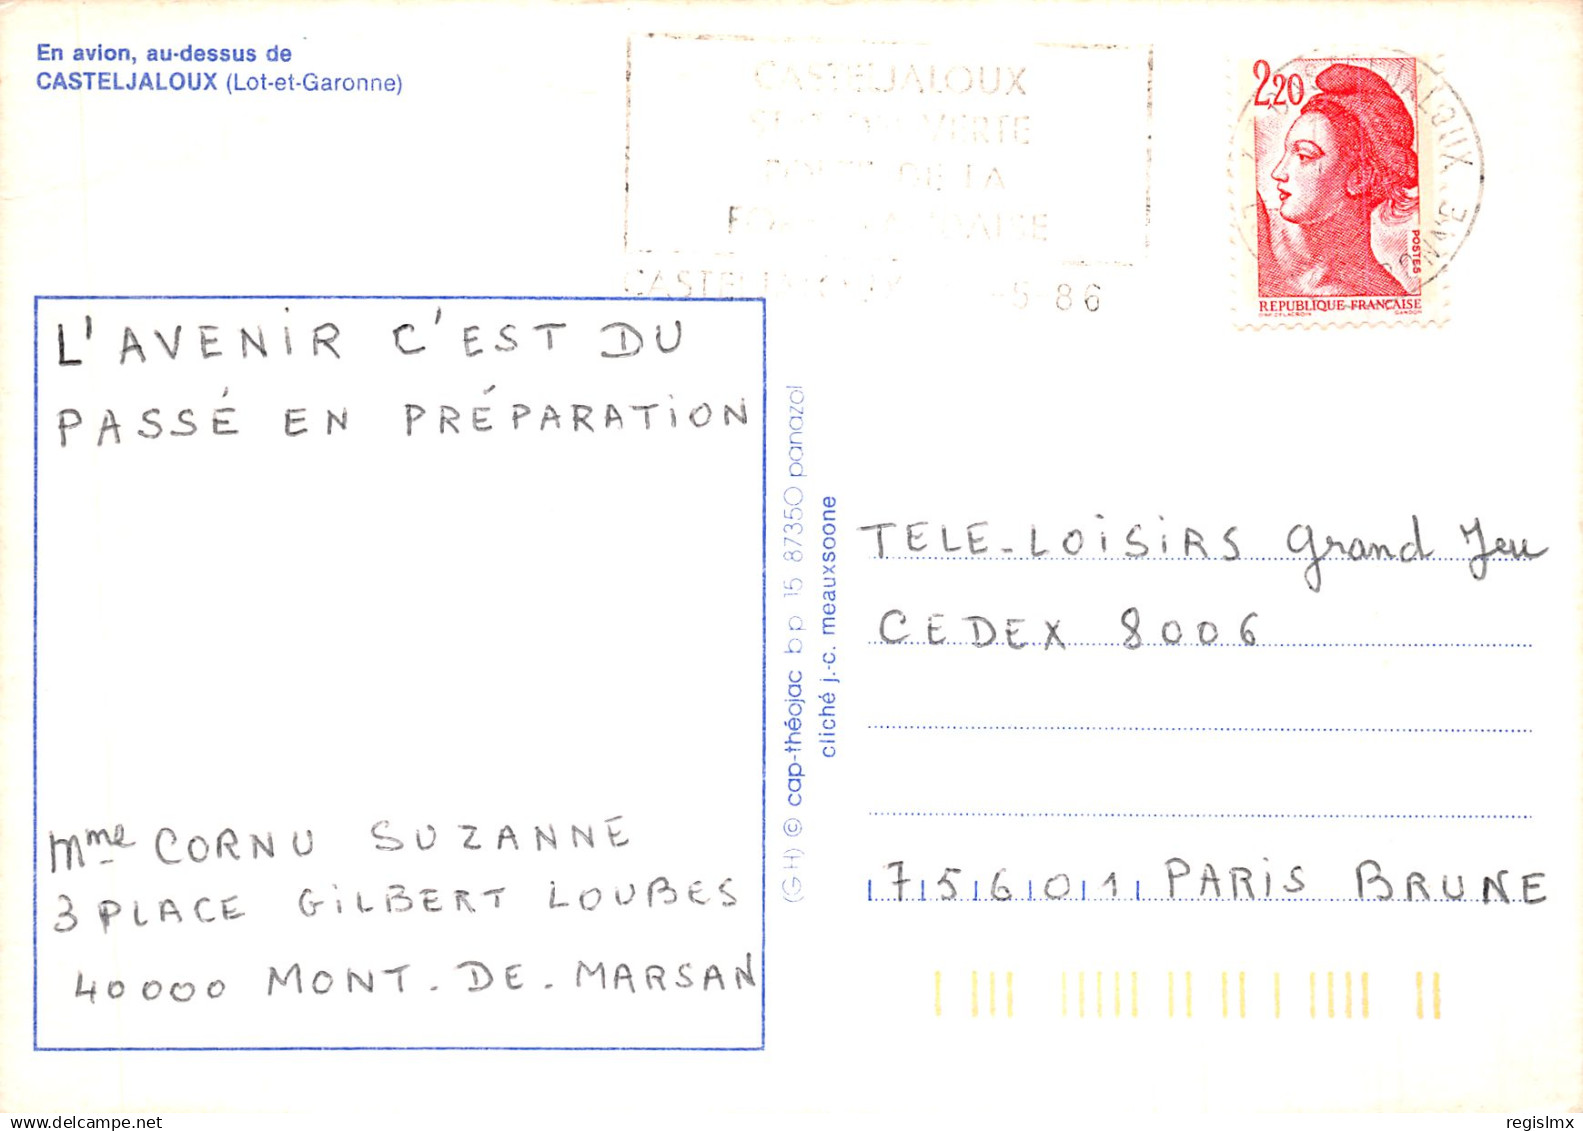 En avion, au-dessus de
CASTELJALOUX (Lot-et-Garonne)
CASTELJALOUX
VERTE
DE LA
CASTELJALOUX -5-86
CASTELJALOUX
2,20
POSTES
REPUBLIQUE-FRANÇAISE
D'AP. DELACROIX GANDON
L'AVENIR C'EST DU
PASSÉ EN PRÉPARATION
Mme CORNU SUZANNE
3 PLACE GILBERT LOUBES
40000 MONT-DE-MARSAN
(GH) © cap-théojac bp 15 87350 panazol
cliché j.-c. meauxsoone
TELE-LOISIRS Grand Jeu
CEDEX 8006
75601 PARIS BRUNE
regislmx